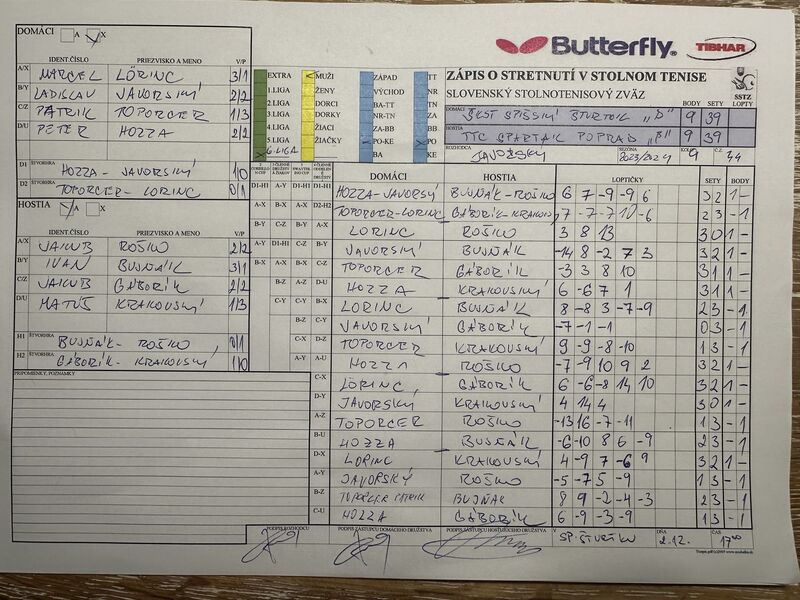 DOMÁCI A X
Butterfly TIBHAR
IDENT.ČÍSLO PRIEZVISKO A MENO V/P
A/X MARCEL LÖRINC 3/1
B/Y LADISLAV JAVORSKÝ 2/2
C/Z PATRIK TOPORCER 1/3
D/U PETER HOZZA 2/2
D1 ŠTVORHRA HOZZA - JAVORSKÝ 1/0
D2 ŠTVORHRA TOPORCER - LORINC 0/1
HOSTIA A X
IDENT.ČÍSLO PRIEZVISKO A MENO V/P
A/X JAKUB ROŠKO 2/2
B/Y IVAN BUJŇÁK 3/1
C/Z JAKUB GÁBORÍK 2/2
D/U MATÚŠ KRAKOVSKÝ 1/3
H1 ŠTVORHRA BUJŇÁK - ROŠKO 0/1
H2 ŠTVORHRA GÁBORÍK - KRAKOVSKÝ 1/0
PRIPOMIENKY, POZNÁMKY
EXTRA MUŽI ZÁPAD TT
1.LIGA ŽENY VÝCHOD NR
2.LIGA DORCI BA-TT TN
3.LIGA DORKY NR-TN ZA
4.LIGA ŽIACI ZA-BB BB
5.LIGA ŽIAČKY PO-KE PO
6.LIGA BA KE
ZÁPIS O STRETNUTÍ V STOLNOM TENISE
SLOVENSKÝ STOLNOTENISOVÝ ZVÄZ
SSTZ
BODY SETY LOPTY
DOMÁCI ŠKST SPIŠSKÝ ŠTVRTOK "D" 9 39
HOSTIA TTC SPARTAK POPRAD "B" 9 39
ROZHODCA JAVORSKÝ SEZÓNA 2023/2024 KOLO 9 Č.Z. 34
DOMÁCI HOSTIA LOPTIČKY SETY BODY
D1-H1 A-Y D1-H1 D1-H1 HOZZA-JAVORSKÝ BUJŇÁK-ROŠKO 6 7 -9 -9 6 3 2 1 -
A-X B-X A-X D2-H2 TOPORCER-LORINC GÁBORÍK-KRAKOVSKÝ 7 -7 -7 10 -6 2 3 - 1
B-Y C-Z B-Y A-X LORINC ROŠKO 3 8 13 3 0 1 -
A-Y D1-H1 C-Z B-Y JAVORSKÝ BUJŇÁK -14 8 -2 7 3 3 2 1 -
B-X A-X C-Z TOPORCER GÁBORÍK -3 3 8 10 3 1 1 -
B-Z A-Z D-U HOZZA KRAKOVSKÝ 6 -6 7 1 3 1 1 -
C-Y C-Y B-X LORINC BUJŇÁK 8 -8 3 -7 -9 2 3 - 1
B-Z C-Y JAVORSKÝ GÁBORÍK -7 -1 -1 0 3 - 1
C-X D-Z TOPORCER KRAKOVSKÝ 9 -9 -8 -10 1 3 - 1
A-Y A-U HOZZA ROŠKO -7 -9 10 9 2 3 2 1 -
C-X LÖRINC GÁBORÍK 6 -6 -8 14 10 3 2 1 -
D-Y JAVORSKÝ KRAKOVSKÝ 4 14 4 3 0 1 -
A-Z TOPORCER ROŠKO -13 16 -7 -11 1 3 - 1
B-U HOZZA BUJŇÁK -6 -10 8 6 -9 2 3 - 1
D-X LORINC KRAKOVSKÝ 4 -9 7 -6 9 3 2 1 -
A-Y JAVORSKÝ ROŠKO -5 -7 5 -9 1 3 - 1
B-Z BUJŇÁK 8 9 -2 -4 -3 2 3 - 1
C-U HOZZA GÁBORÍK 6 -9 -3 -9 1 3 - 1
PODPIS ROZHODCU PODPIS ZÁSTUPCU DOMÁCEHO DRUŽSTVA PODPIS ZÁSTUPCU HOSŤUJÚCEHO DRUŽSTVA V SP. ŠTVRTKU DŇA 2.12. ČAS 17:00